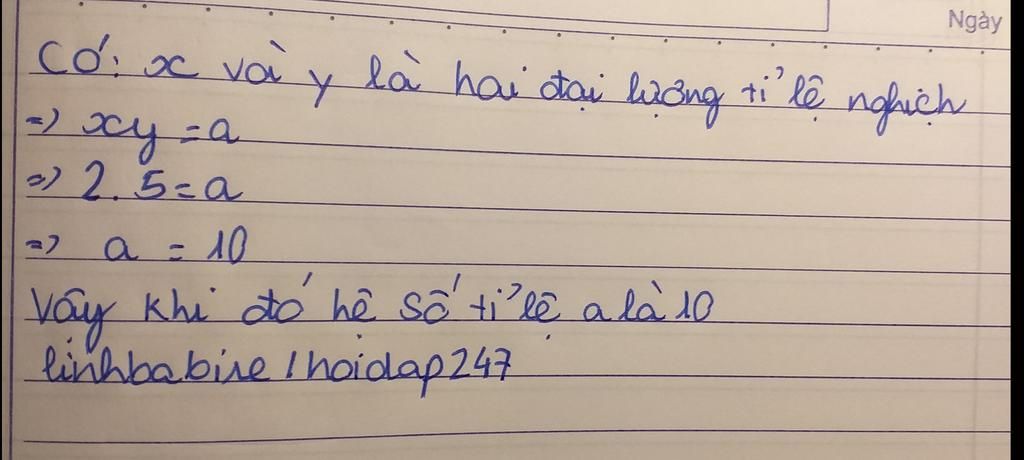 Ngày
Có: x và y là hai đại lượng tỉ lệ nghịch
=> xy = a
=> 2. 5 = a
=> a = 10
Vậy khi đó hệ số tỉ lệ a là 10
linhbabie/hoidap247